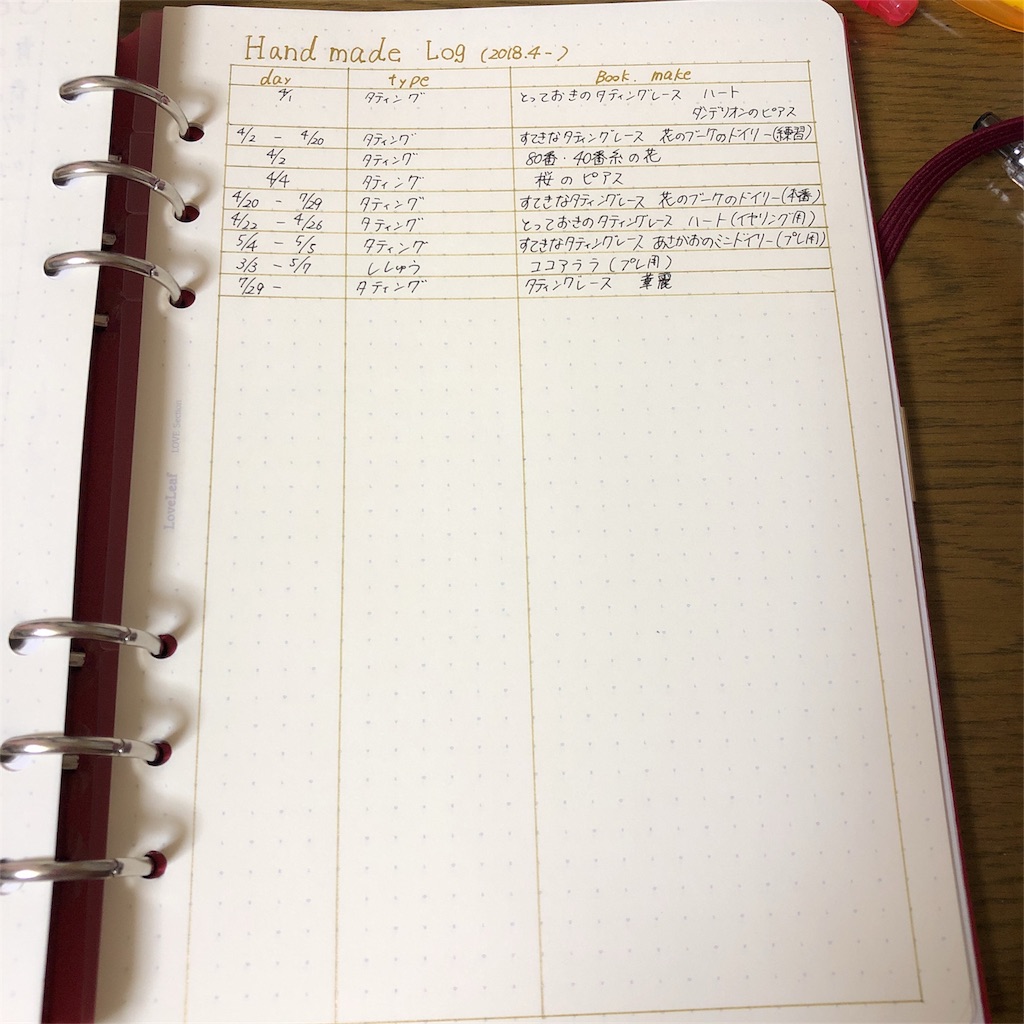 Hand made Log (2018.4-)
day type Book. make
4/1 タティング とっておきのタティングレース ハート
ダンデリオンのピアス
4/2 - 4/20 タティング すてきなタティングレース 花のブーケのドイリー(練習)
4/2 タティング 80番・40番糸の花
4/4 タティング 桜のピアス
4/20 - 7/29 タティング すてきなタティングレース 花のブーケのドイリー(本番)
4/22 - 4/26 タティング とっておきのタティングレース ハート(イヤリング用)
5/4 - 5/5 タティング すてきなタティングレース あさがおのミニドイリー(プレ用)
3/3 - 5/7 ししゅう ココアララ(プレ用)
7/29 - タティング タティングレース 華麗
LoveLeaf LOVE Section